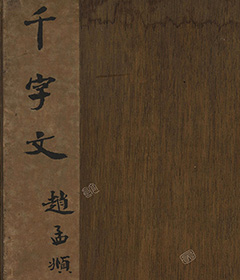 千字文
趙孟頫